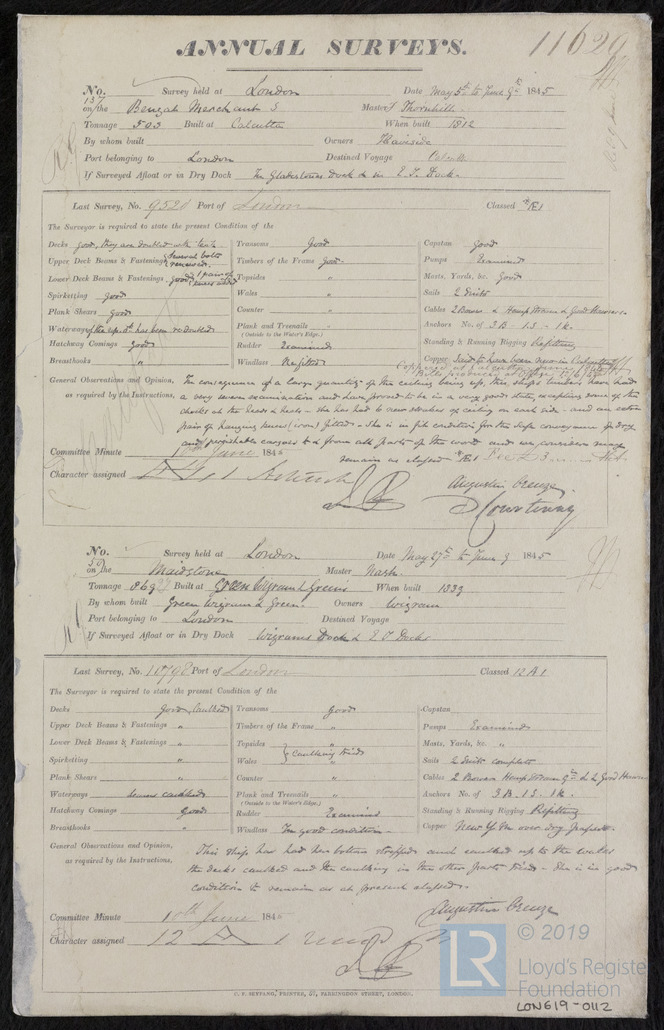 ANNUAL SURVEYS.
11629
No. 137 Survey held at London Date May 5th to June 9th 1845
on the Bengal Merchant S Master J Thornhill
Tonnage 503 Built at Calcutta When built 1812
By whom built Owners Heaviside
Port belonging to London Destined Voyage Calcutta
If Surveyed Afloat or in Dry Dock In Gladstones Dock & in E.I. Dock.
Last Survey, No. 9520 Port of London Classed Æ1
The Surveyor is required to state the present Condition of the
Decks good, they are doubled with teak
Upper Deck Beams & Fastenings several bolts renewed.
Lower Deck Beams & Fastenings good & 1 pair of knees added
Spirketting good
Plank Shears good
Waterways of the up. dk has been redoubled
Hatchway Comings good
Breasthooks "
Transoms Good
Timbers of the Frame Good.
Topsides "
Wales "
Counter "
Plank and Treenails "
(Outside to the Water's Edge.)
Rudder Examined
Windlass Refitted
Capstan Good
Pumps Examined
Masts, Yards, &c. Good
Sails 2 Suits
Cables 2 Bower & Hemp Stream & Good Hawsers.
Anchors No. of 3 B - 1 S - 1 K.
Standing & Running Rigging Refitting
Copper Said to have been new in Calcutta
General Observations and Opinion, In consequence of a large quantity of the ceiling being up, the ship's timbers have had
as required by the Instructions, a very severe examination and have proved to be in a very good state, excepting some of the
chocks at the heads & heels - she has had a new strakes of ceiling on each side - and an extra
pair of hanging knees (iron) fitted - She is in fit condition for the safe conveyance of dry
and perishable cargoes to & from all parts of the world and we consider may
remain as classed Æ1
Committee Minute 10th June 1845
Character assigned
Augustin Creuze
Courtenay
No. 59 Survey held at London Date May 27th to June 9 1845
on the Maidstone Master Nash.
Tonnage 869 Built at Green Wigram & Greens When built 1839
By whom built Green Wigram & Green. Owners Wigram
Port belonging to London Destined Voyage
If Surveyed Afloat or in Dry Dock Wigrams Dock & E I Docks
Last Survey, No. 10798 Port of London Classed 12 A1
The Surveyor is required to state the present Condition of the
Decks Good, Caulked
Upper Deck Beams & Fastenings "
Lower Deck Beams & Fastenings "
Spirketting "
Plank Shears "
Waterways seams caulked
Hatchway Comings Good
Breasthooks "
Transoms Good
Timbers of the Frame "
Topsides "
Wales } Caulking tried
Counter "
Plank and Treenails "
(Outside to the Water's Edge.)
Rudder Examined
Windlass In good condition -
Capstan
Pumps Examined
Masts, Yards, &c. "
Sails 2 Suits complete
Cables 2 Bowers Hemp Stream & 2 Good Hawsers
Anchors No. of 3 B. 1 S. 1 K.
Standing & Running Rigging Refitting
Copper New
General Observations and Opinion, This Ship has had her bottom stripped and caulked up to the wales
as required by the Instructions. the decks caulked and the caulking in the other parts tried - She is in good
condition to remain as at present classed.
Augustin Creuze
Committee Minute 10th June 1845
Character assigned 12 A 1
C. F. SEYFANG, PRINTER, 57, FARRINGDON STREET, LONDON.
LR © 2019
Lloyd's Register
Foundation
LON619-0112